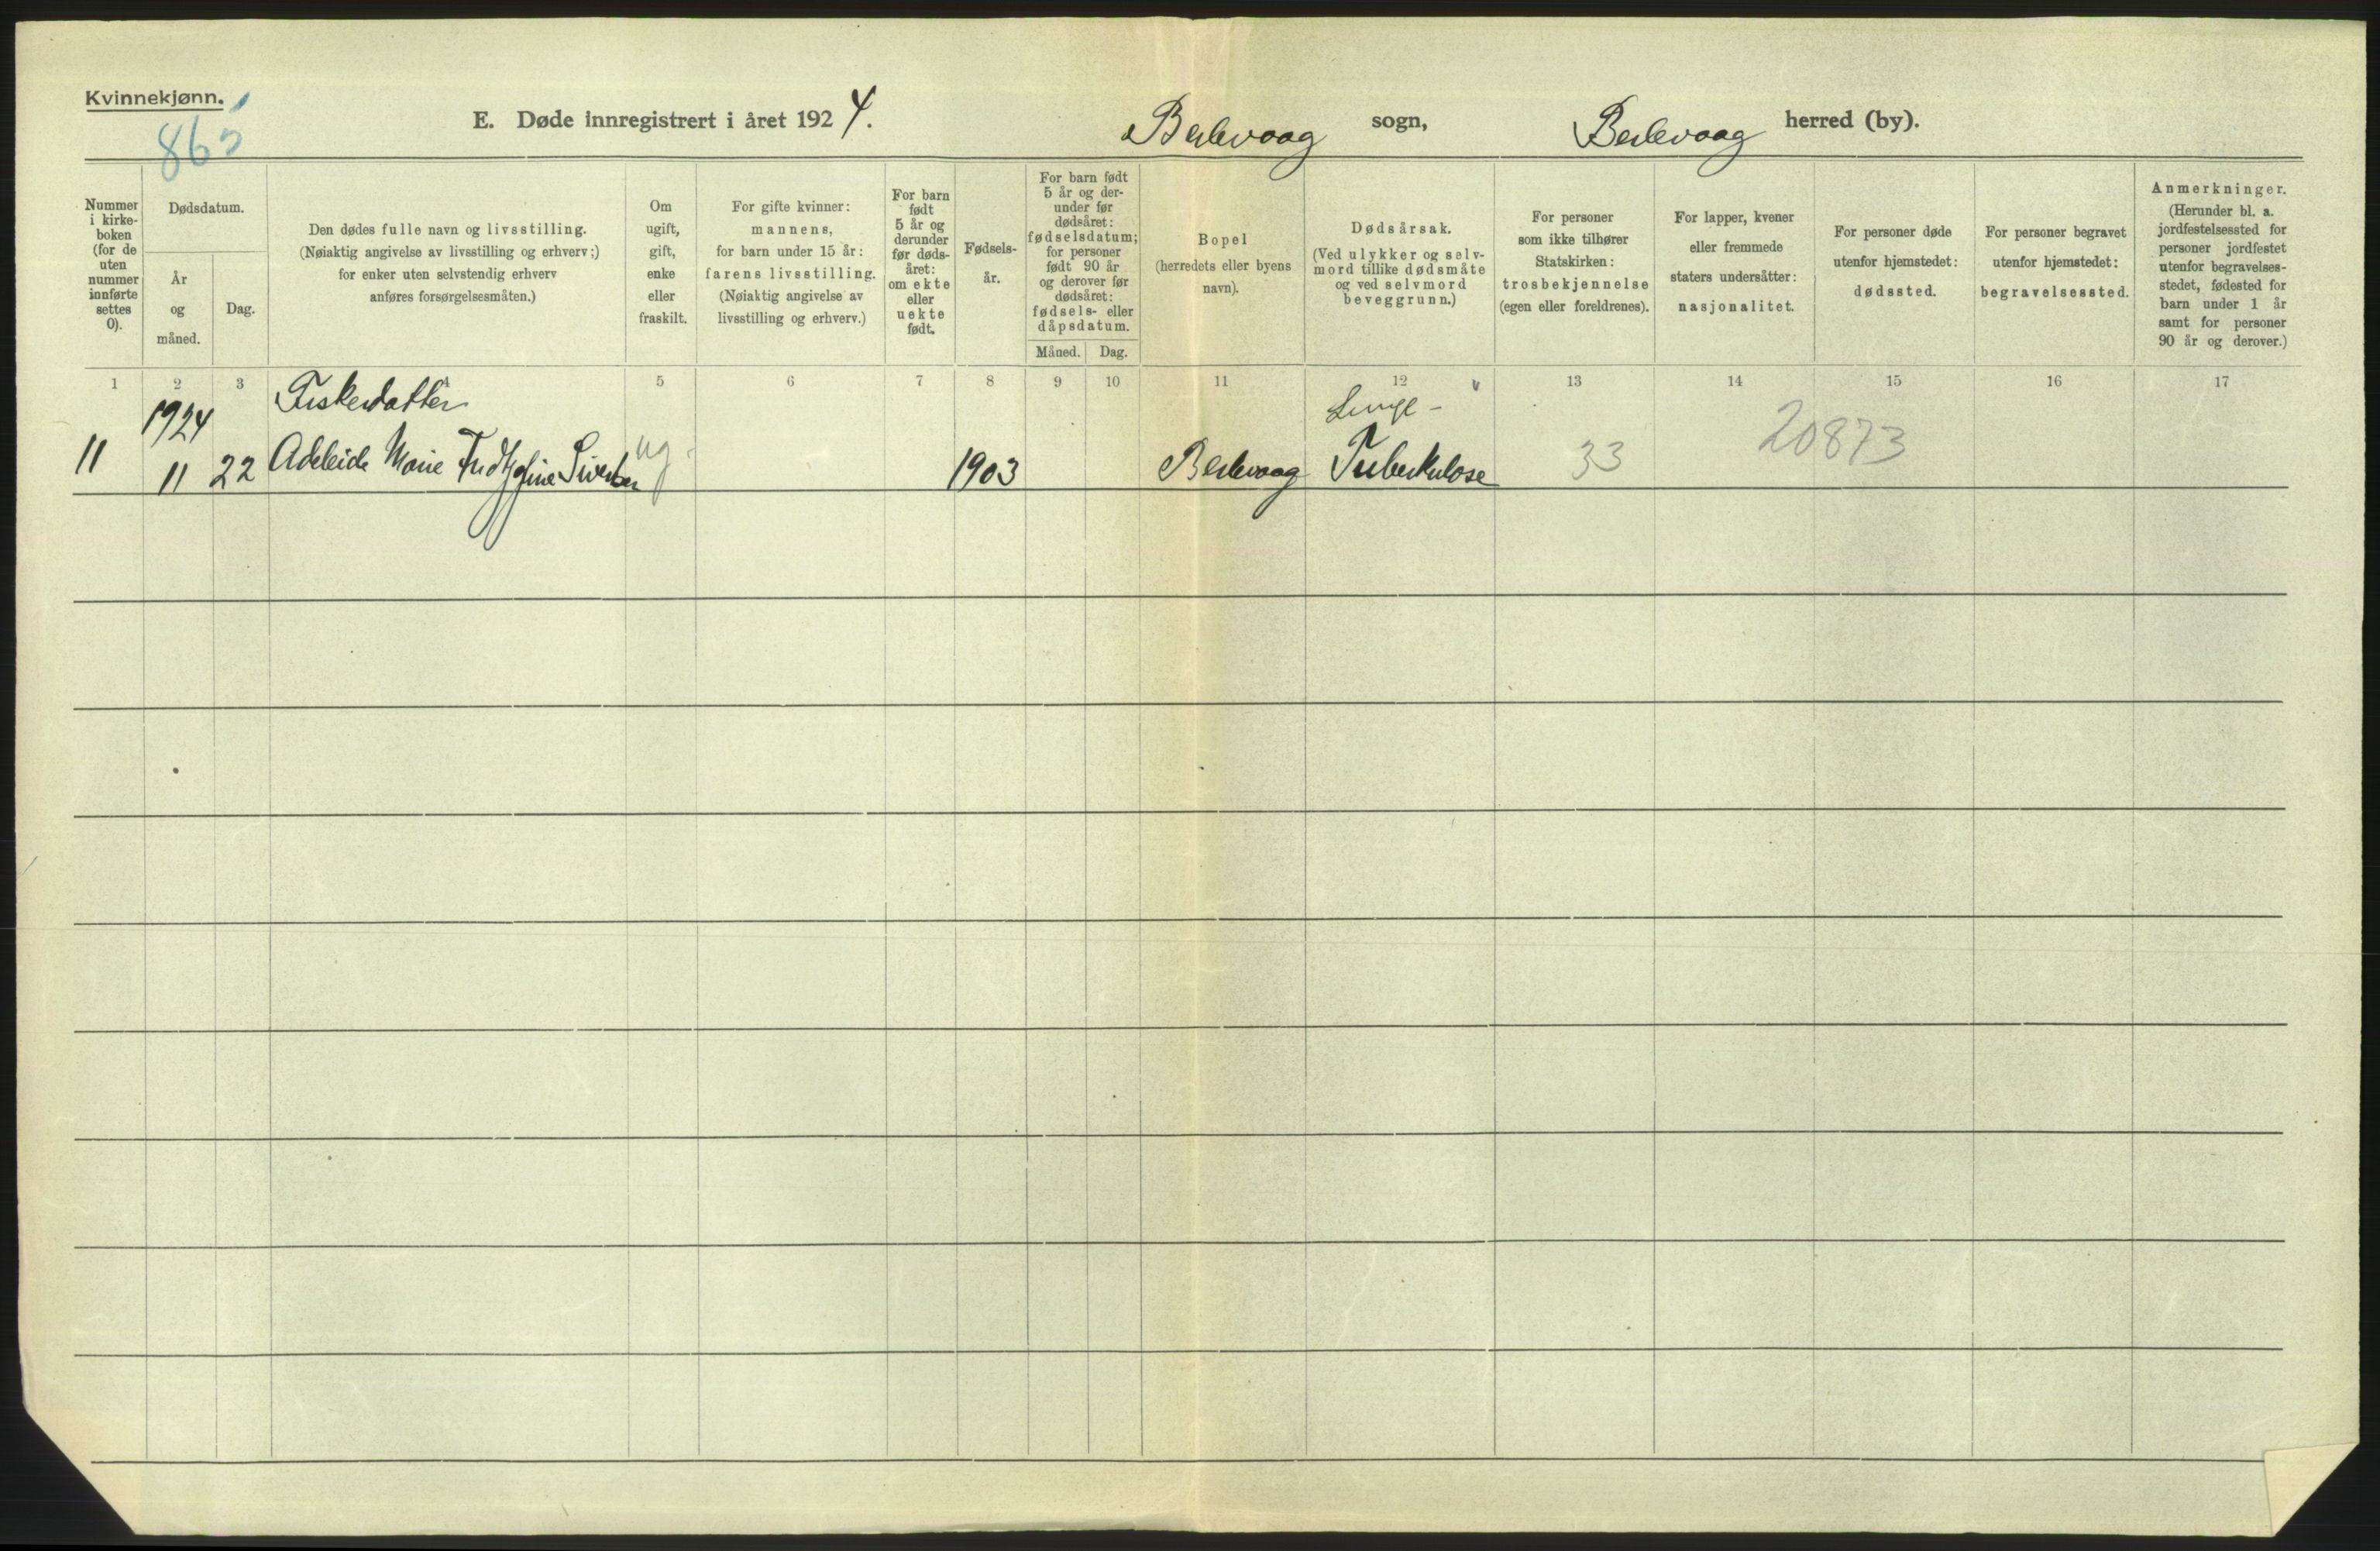 Kvinnekjønn.
E. Døde innregistrert i året 1924. Berlevaag sogn, Berlevaag herred (by).
865
Nummer i kirkeboken (for de uten nummer innførte settes 0).
Dødsdatum.
År og måned.
Dag.
Den dødes fulle navn og livsstilling.
(Nøiaktig angivelse av livsstilling og erhverv;)
for enker uten selvstendig erhverv
anføres forsørgelsesmåten.)
Om ugift, gift, enke eller fraskilt.
For gifte kvinner:
mannens,
for barn under 15 år:
farens livsstilling.
(Nøiaktig angivelse av
livsstilling og erhverv.)
For barn født 5 år og derunder før dødsåret: om ekte eller uekte født.
Fødselsår.
For barn født 5 år og derunder før dødsåret: fødselsdatum; for personer født 90 år og derover før dødsåret: fødsels- eller dåpsdatum.
Måned. Dag.
Bopel
(herredets eller byens
navn).
Dødsårsak.
(Ved ulykker og selvmord tillike dødsmåte
og ved selvmord
beveggrunn.)
For personer
som ikke tilhører
Statskirken:
trosbekjennelse
(egen eller foreldrenes).
For lapper, kvener
eller fremmede
staters undersåtter:
nasjonalitet.
For personer døde
utenfor hjemstedet:
dødssted.
For personer begravet
utenfor hjemstedet:
begravelsessted.
Anmerkninger.
(Herunder bl. a.
jordfestelsessted for
personer jordfestet
utenfor begravelses-
stedet, fødested for
barn under 1 år
samt for personer
90 år og derover.)
1 2 3 4 5 6 7 8 9 10 11 12 13 14 15 16 17
1924 Fiskerdatter Lunge-
11 11 22 Adeleide Marie Fridtjofine Sivertsen ug. 1903 Berlevaag Tuberkulose 33 20873